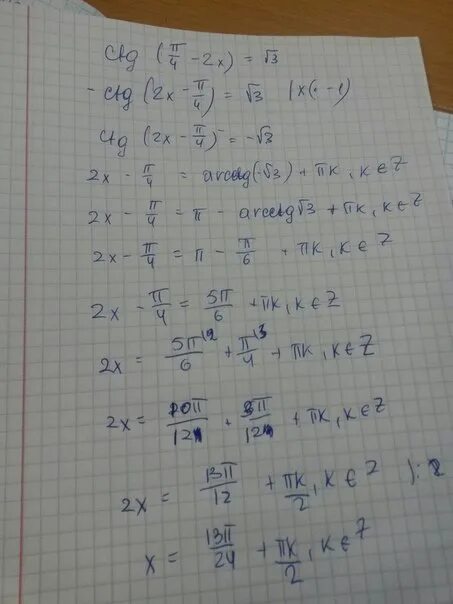 ctg (π/4 - 2x) = √3
- ctg (2x - π/4) = √3 | x(-1)
ctg (2x - π/4) = -√3
2x - π/4 = arcctg(-√3) + πk, k ∈ Z
2x - π/4 = π - arcctg√3 + πk, k ∈ Z
2x - π/4 = π - π/6 + πk, k ∈ Z
2x - π/4 = 5π/6 + πk, k ∈ Z
2x = 5π/6 + π/4 + πk, k ∈ Z
2x = 10π/12 + 3π/12 + πk, k ∈ Z
2x = 13π/12 + πk/2, k ∈ Z ):2
x = 13π/24 + πk/2, k ∈ Z